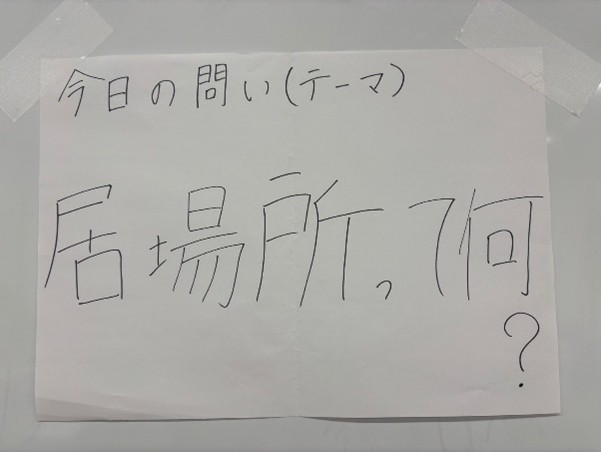 今日の問い(テーマ)
居場所って何
?